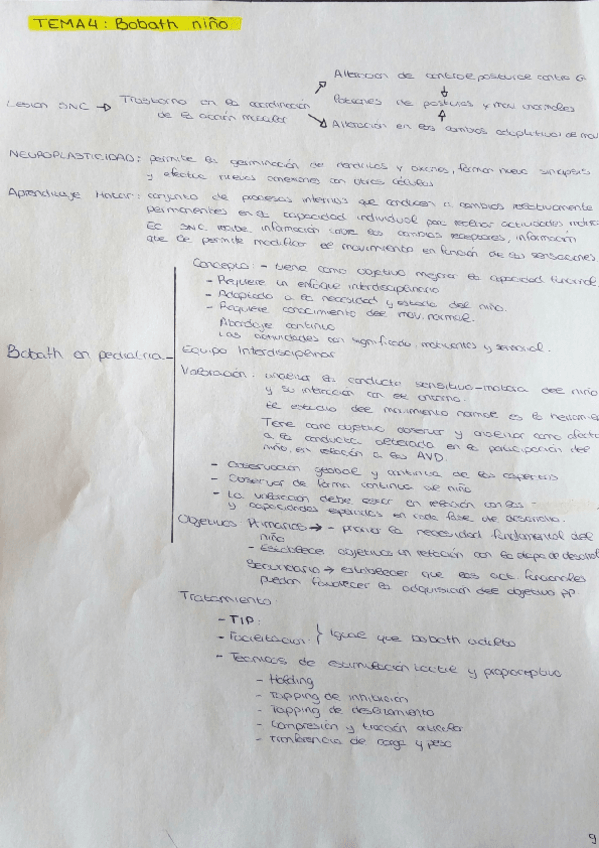 TEMA4: Bobath niño
Alteración de control postural contra G.
Lesion SNC → Trastorno en la coordinación
de la acción muscular
Patrones de posturas y mov anormales
Alteración en los cambios adaptativos de mov
NEUROPLASTICIDAD: permite la germinación de y axones, formar nueva sinapsis
y efectua nuevas conexiones con otras células
Aprendizaje Motor: conjunto de procesos internos que conducen a cambios relativamente
permanentes en la capacidad individual para actividades
El SNC recibe información sobre los cambios receptores, información
que le permite modificar el movimiento en función de las sensaciones
Concepto: - tiene como objetivo mejorar la capacidad funcional.
- Requiere un enfoque interdisciplinario
- Adaptado a la necesidad y estado del niño.
- Requiere conocimiento del mov. normal.
Abordaje continuo
Las actividades con significado, motivantes y
Bobath en pediatria. - Equipo Interdisciplinar
Valoración: analizar la conducta sensitivo-motora del niño
y su interacción con el entorno.
El estudio del movimiento normal es la
Tiene como objetivo observar y como afecta
a la conducta alterada en la participación del
niño, en relación a las AVD.
- Observación global y continua de los aspectos
- Observar de forma continua al niño
- La valoración debe estar en relación con las -
y capacidades en cada fase de desarrollo.
Objetivos Primarios → - la necesidad fundamental del
niño
- Establece objetivos en relación con la etapa de desarrol
Secundario → establecer que las act. funcionales
puedan favorecer la adquisición del objetivo pp.
Tratamiento:
- TIP:
- Facilitación: } Igual que bobath adulto
- Técnicas de estimulación tactil y propioceptiva
- Holding
- Tapping de inhibición
- Tapping de deslizamiento
- Compresión y tracción articular
- Tranferencia de carga y peso
9